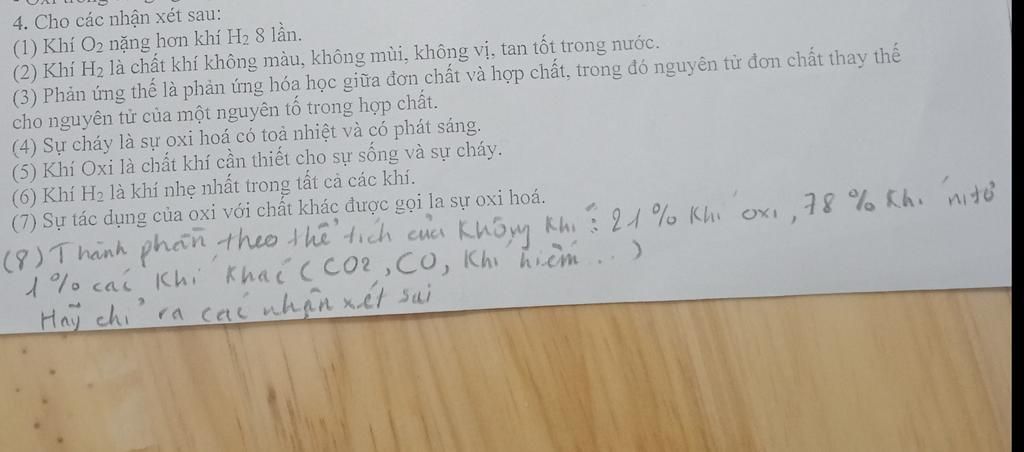 4. Cho các nhận xét sau:
(1) Khí O2 nặng hơn khí H2 8 lần.
(2) Khí H2 là chất khí không màu, không mùi, không vị, tan tốt trong nước.
(3) Phản ứng thế là phản ứng hóa học giữa đơn chất và hợp chất, trong đó nguyên tử đơn chất thay thế
cho nguyên tử của một nguyên tố trong hợp chất.
(4) Sự cháy là sự oxi hoá có toả nhiệt và có phát sáng.
(5) Khí Oxi là chất khí cần thiết cho sự sống và sự cháy.
(6) Khí H2 là khí nhẹ nhất trong tất cả các khí.
(7) Sự tác dụng của oxi với chất khác được gọi la sự oxi hoá.
(8) Thành phần theo thể tích của không khí : 21% khí oxi, 78% khí nitơ
1% các khí khác (CO2, CO, khí hiếm...)
Hãy chỉ ra các nhận xét sai